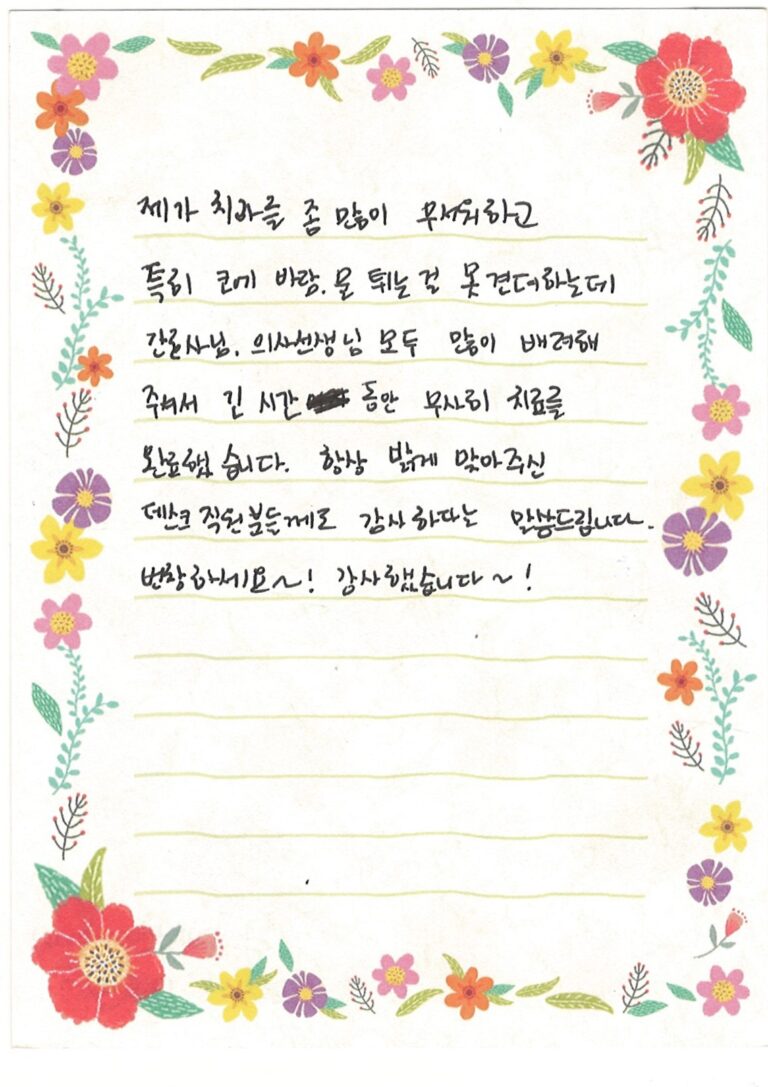 제가 치과를 좀 많이 무서워하고
특히 코에 바람, 물 튀는 걸 못 견뎌하는데
간호사님, 의사선생님 모두 많이 배려해
주셔서 긴 시간 동안 무사히 치료를
완료했습니다. 항상 밝게 맞아주신
데스크 직원분들께도 감사하다는 말씀드립니다.
번창하세요~! 감사했습니다~!